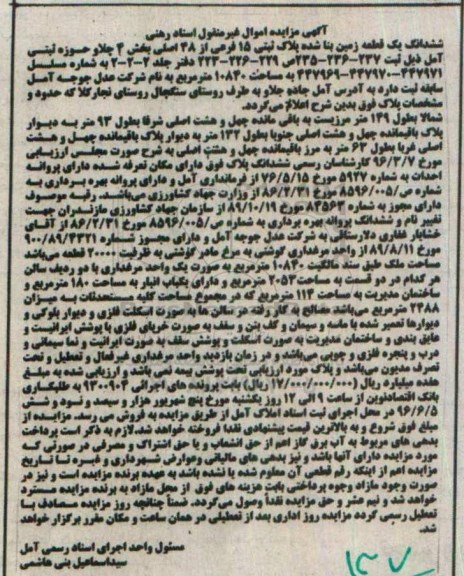 آگهی مزایده اموال غیرمنقول اسناد رهنی
ششدانگ یک قطعه زمین بنا شده پلاک ثبتی ۱۵ فرعی از ۴۸ اصلی بخش ۴ چلاو حوزه ثبتی
آمل ذیل ثبت ۲۳۷-۲۳۶-۲۳۵ص ۲۲۹-۲۲۶-۲۲۳ دفتر جلد ۲-۲-۲ به شماره مسلسل
۴۴۷۹۷۱-۴۴۷۹۷۰-۴۴۷۹۶۹ به مساحت ۱۰۸۴۰ مترمربع به نام شرکت عدل جوجه آمل
سابقه ثبت دارد به آدرس آمل جاده چلاو به طرف روستای سنگچال روستای نجارکلا که حدود و
مشخصات پلاک فوق بدین شرح اعلام می‌گردد.
شمالا بطول ۱۴۹ متر مرزیست به باقی مانده چهل و هشت اصلی شرقا بطول ۹۳ متر به دیوار
پلاک باقیمانده چهل و هشت اصلی جنوبا بطول ۱۴۲ متر به دیوار پلاک باقیمانده چهل و هشت
اصلی غربا بطول ۶۳ متر به مرز باقیمانده چهل و هشت اصلی به شرح صورت مجلس ارزیابی
مورخ ۹۶/۳/۷ کارشناسان رسمی ششدانگ پلاک فوق دارای مکان تعرفه شده دارای پروانه
احداث به شماره ۵۹۲۷ مورخ ۷۶/۵/۱۵ از فرمانداری آمل و دارای پروانه بهره برداری به
شماره ص/۸۵۹۶/۰۰۵ مورخ ۸۶/۲/۳۱ از وزارت جهاد کشاورزی می‌باشد. رقبه موصوف
دارای مجوز به شماره ۸۴۵۶۳ مورخ ۸۹/۱۰/۱۹ از سازمان جهاد کشاورزی مازندران جهت
تغییر نام و ششدانگ پروانه بهره برداری به شماره ص/۸۵۹۶/۰۰۵ مورخ ۸۶/۲/۳۱ از آقای
خشایار غفاری دلارستاقی به شرکت عدل جوجه آمل و دارای مجوز شماره ۹۰۰/۸۹/۴۳۲۱
مورخ ۸۹/۸/۱۱ از واحد مرغداری گوشتی به مرغ مادر گوشتی به ظرفیت ۲۰۰۰۰ قطعه می‌باشد
مساحت ملک طبق سند مالکیت ۱۰۸۴۰ مترمربع به صورت یک واحد مرغداری با دو ردیف سالن
هر کدام در دو قسمت به مساحت ۲۰۵۳ مترمربع و دارای یکباب انبار به مساحت ۱۸۰ مترمربع و
ساختمان مدیریت به مساحت ۱۱۴ مترمربع که در مجموع مساحت کلیه مستحدثات به میزان
۲۳۸۸ مترمربع می‌باشد مصالح به کار رفته در سالن ها به صورت اسکلت فلزی و دیوار بلوکی و
دیوارها تعمیر شده با ماسه و سیمان و کف بتن و سقف به صورت خرپای فلزی با پوشش ایرانیت و
عایق بندی و ساختمان مدیریت به صورت اسکلت و پوشش سقف به صورت ایرانیت و نما سیمانی و
درب و پنجره فلزی و چوبی می‌باشد و در زمان بازدید واحد مرغداری غیرفعال و تعطیل و تحت
تصرف مدیون می‌باشد و پلاک مورد ارزیابی تحت پوشش بیمه نمی باشد و ارزیابی شده به مبلغ
هفده میلیارد ریال (۱۷/۰۰۰/۰۰۰/۰۰۰ ریال) بابت پرونده های اجرائی ۹۳۰۰۹۰۴ به طلبکاری
بانک اقتصادنوین از ساعت ۹ الی ۱۲ روز یکشنبه مورخ پنج شهریور هزار و سیصد و نود و شش
۹۶/۶/۵ در محل اجرای ثبت اسناد املاک آمل از طریق مزایده به فروش می رسد. مزایده از
مبلغ فوق شروع و به بالاترین قیمت پیشنهادی نقدا فروخته خواهد شد.لازم به ذکر است پرداخت
بدهی های مربوط به آب برق گاز اعم از حق انشعاب و یا حق اشتراک و مصرفی در صورتی که
مورد مزایده دارای آنها باشد و نیز بدهی های مالیاتی وعوارض شهرداری و غیره تا تاریخ
مزایده اعم از اینکه رقم قطعی آن معلوم شده یا نشده باشد به عهده برنده مزایده است و نیز در
صورت وجود مازاد وجوه پرداختی بابت هزینه های فوق از محل مازاد به برنده مزایده مسترد
خواهد شد و نیم عشر و حق مزایده نقداً وصول می‌گردد. ضمناً چنانچه روز مزایده مصادف با
تعطیل رسمی گردد مزایده روز اداری بعد از تعطیلی در همان ساعت و مکان مقرر برگزار خواهد
شد.
مسئول واحد اجرای اسناد رسمی آمل
سیداسماعیل بنی هاشمی
۱۳۷